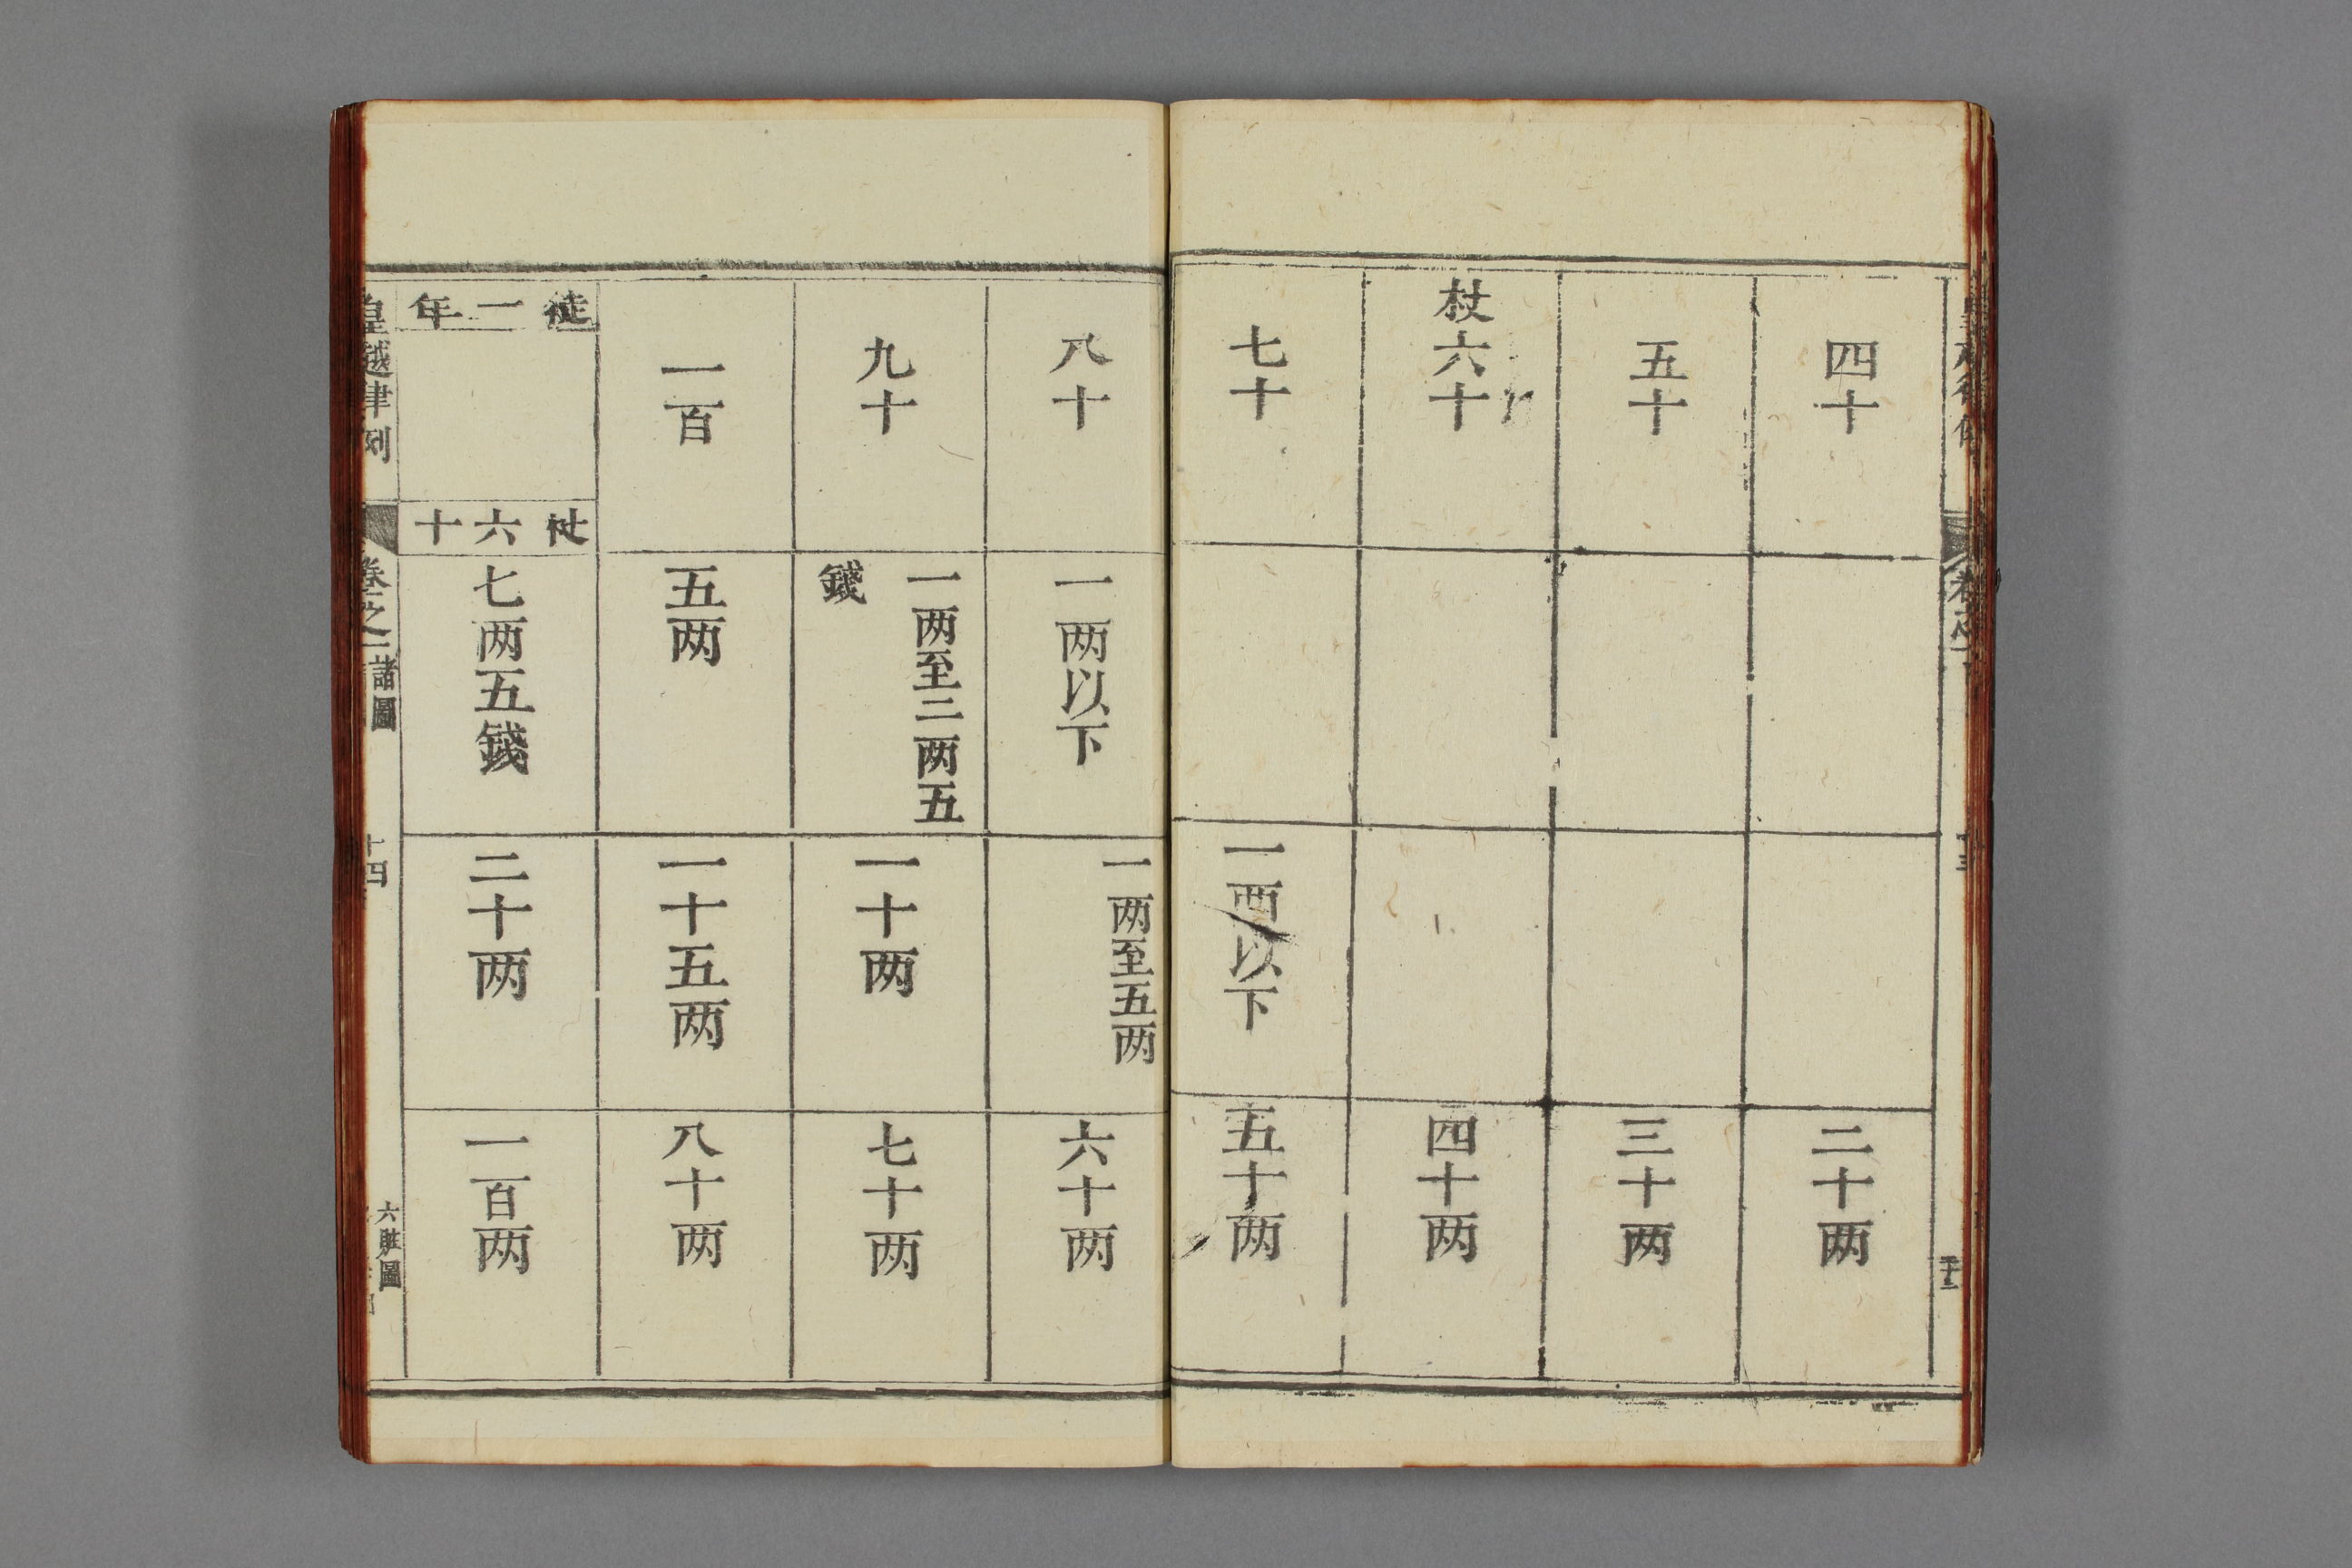 四十
二十两
五十
三十两
杖六十
四十两
七十
一两以下
五十两
八十
一两以下
一两至五两
六十两
九十
一两至二两五
錢
一十两
七十两
一百
五两
一十五两
八十两
徒一年
杖六十
七两五錢
二十两
一百两
皇越律例
卷之一
諸圖
十四
六賍圖